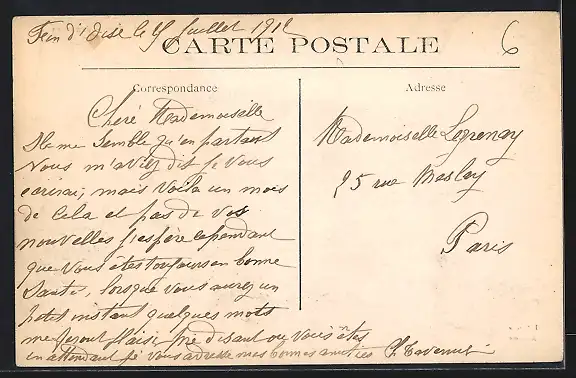 d'Oise le 15 Juillet 191
CARTE POSTALE
6
Correspondance
Adresse
Chère Mademoiselle
Il me semble qu'en partant
Vous m'aviez dit je vous
écrirai, mais voila un mois
de cela et pas de vos
nouvelles j'espère cependant
que vous êtes toujours en bonne
Santé, lorsque vous aurez un
petit instant quelques mots
me feront plaisir me disant ou vous êtes
en attendant je vous adresse mes bonnes amitiés
Mademoiselle Legrenay
25 rue Meslay
Paris